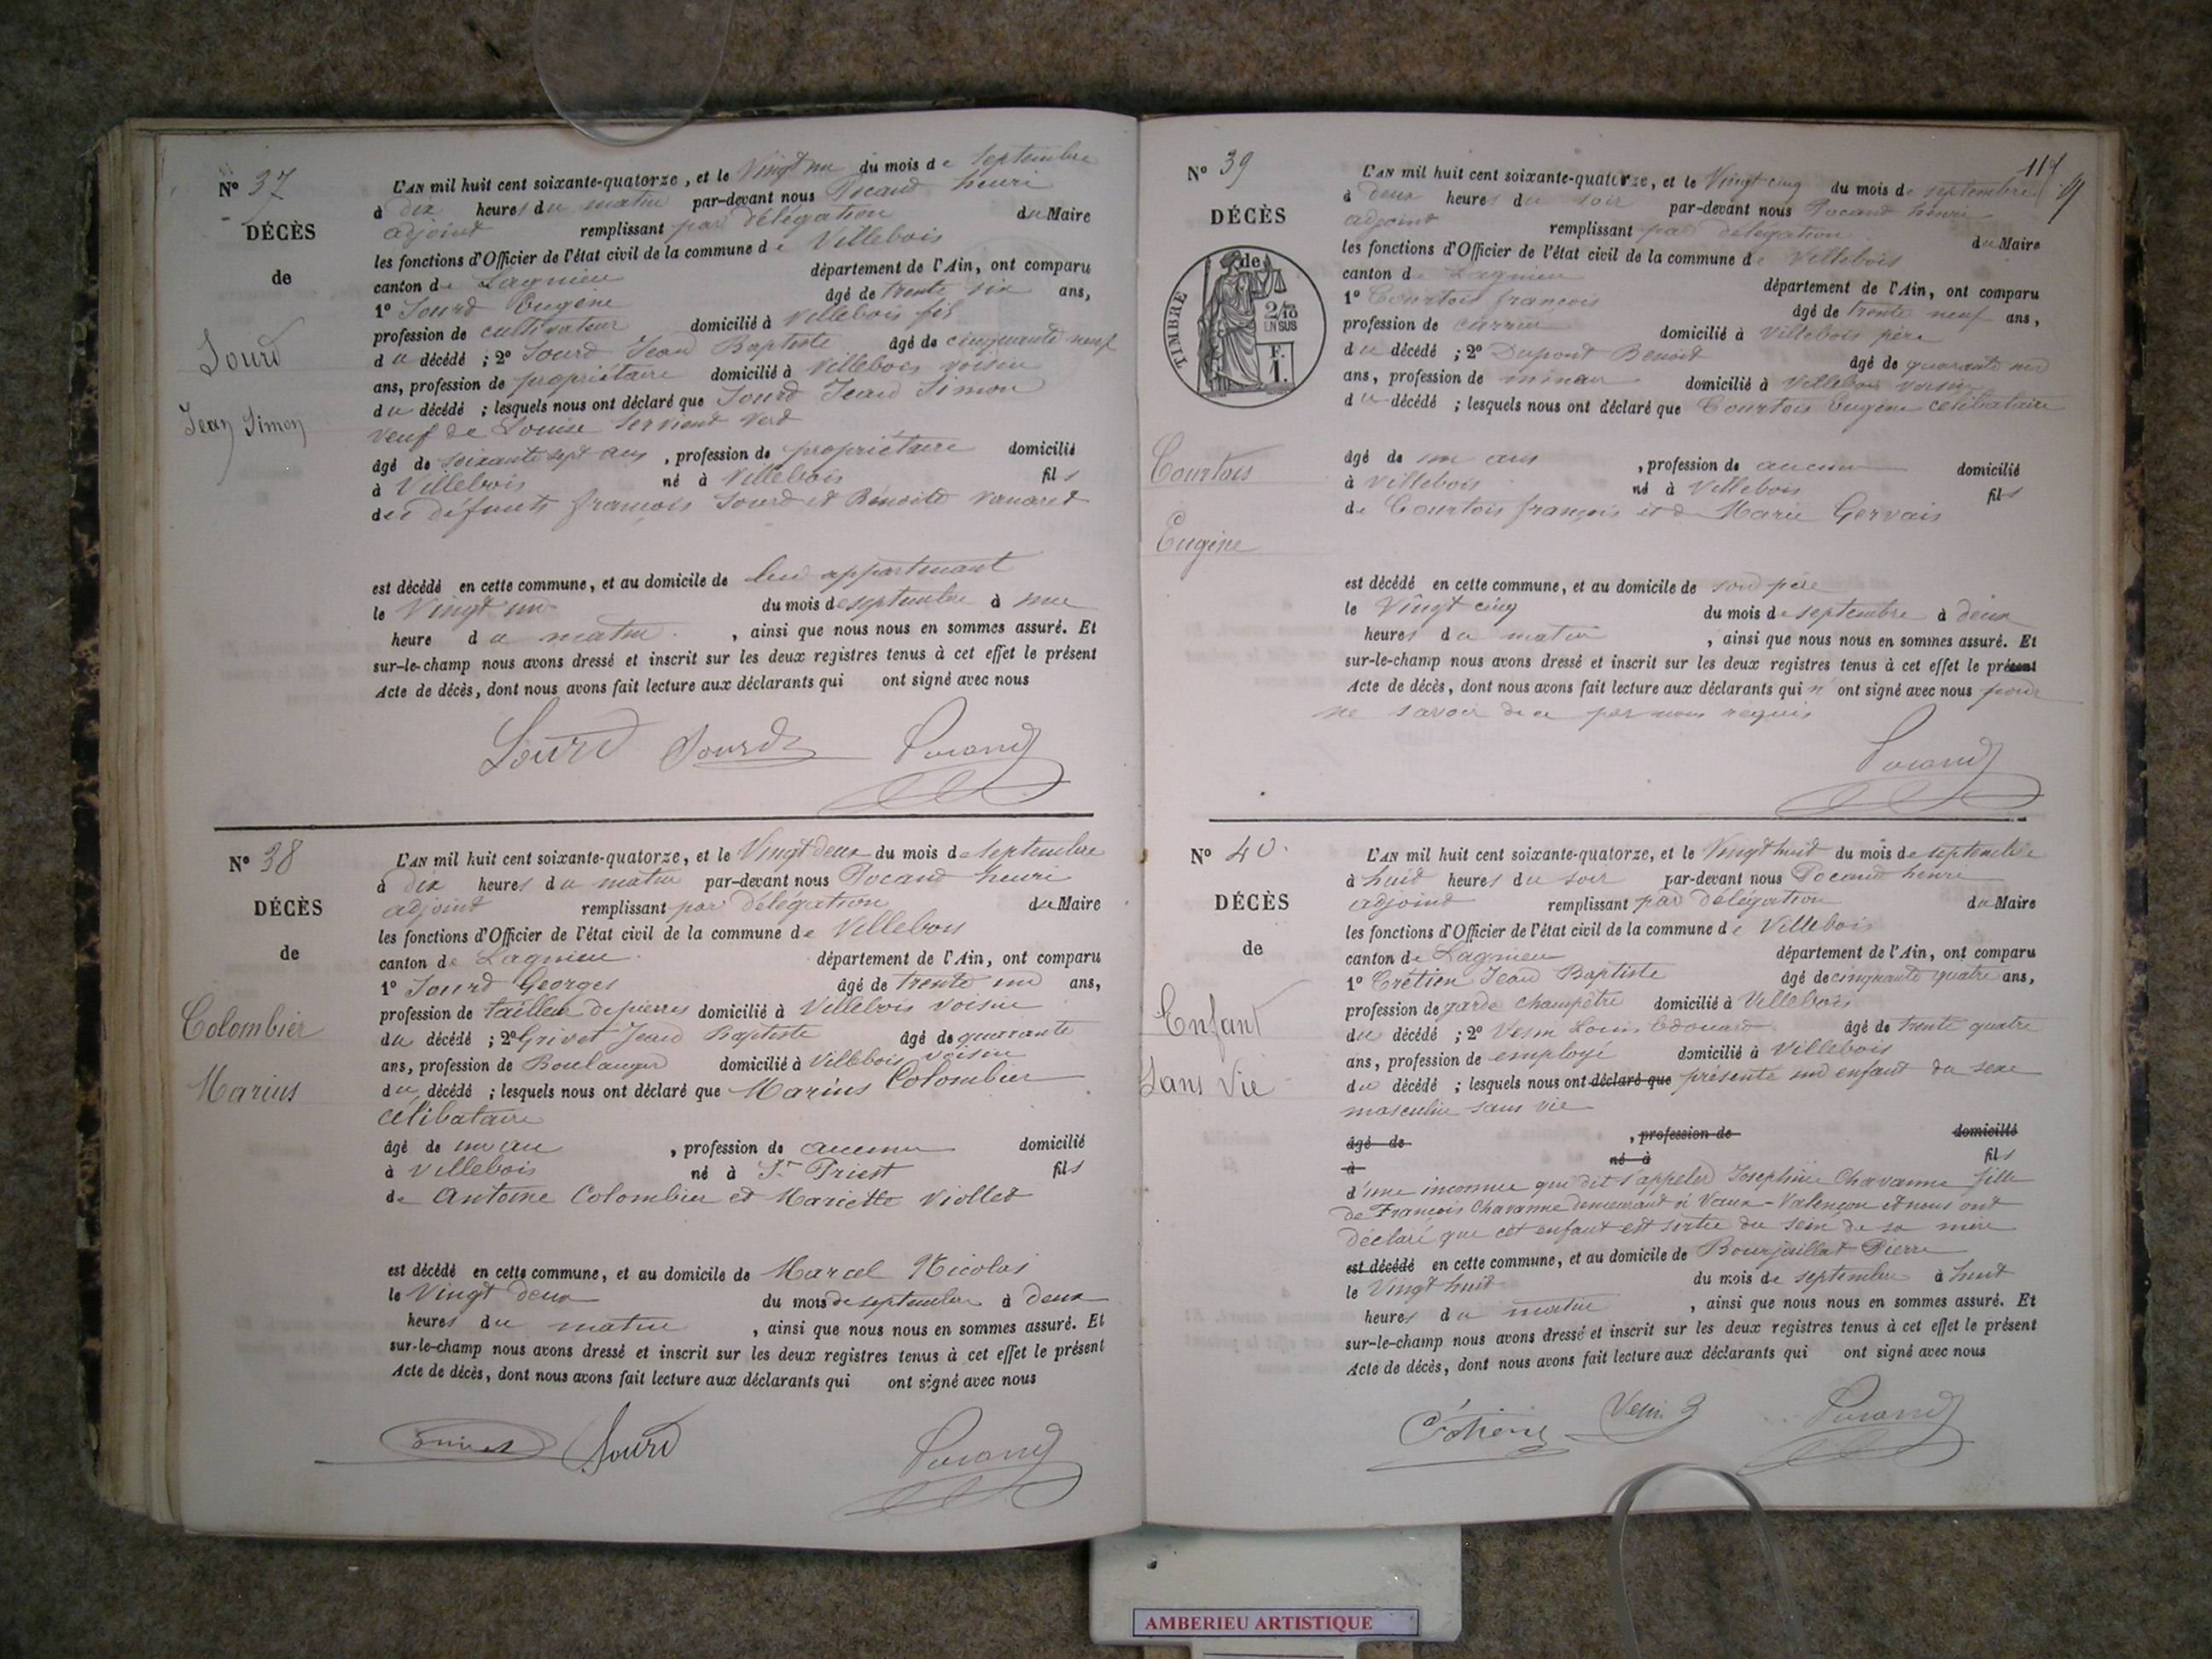 Nº 37
DÉCÈS
de
Sourd
Jean Simon
L'AN mil huit cent soixante-quatorze, et le Vingt un du mois de septembre
à dix heures du matin par-devant nous Pocand henri
adjoint remplissant par délégation du Maire
les fonctions d'Officier de l'état civil de la commune de Villebois
canton de Lagnieu département de l'Ain, ont comparu
1º Sourd Eugène âgé de trente six ans,
profession de cultivateur domicilié à Villebois fils
du décédé ; 2º Sourd Jean Baptiste âgé de cinquante neuf
ans, profession de propriétaire domicilié à Villebois voisin
du décédé ; lesquels nous ont déclaré que Sourd Jean Simon
veuf de Louise Servient
âgé de soixante sept ans, profession de propriétaire domicilié
à Villebois né à Villebois fils
des défunts françois Sourd et Benoite Vanaret
est décédé en cette commune, et au domicile de lui appartenant
le Vingt un du mois de septembre à une
heure du matin, ainsi que nous nous en sommes assuré. Et
sur-le-champ nous avons dressé et inscrit sur les deux registres tenus à cet effet le présent
Acte de décès, dont nous avons fait lecture aux déclarants qui ont signé avec nous
Sourd Sourd Pocand
Nº 38
DÉCÈS
de
Colombier
Marius
L'AN mil huit cent soixante-quatorze, et le Vingt deux du mois de septembre
à dix heures du matin par-devant nous Pocand henri
adjoint remplissant par délégation du Maire
les fonctions d'Officier de l'état civil de la commune de Villebois
canton de Lagnieu département de l'Ain, ont comparu
1º Sourd Georges âgé de trente un ans,
profession de tailleur de pierres domicilié à Villebois voisin
du décédé ; 2º Grivet Jean Baptiste âgé de quarante
ans, profession de Boulanger domicilié à Villebois voisin
du décédé ; lesquels nous ont déclaré que Marius Colombier
célibataire
âgé de un an, profession de aucune domicilié
à Villebois né à St Priest fils
de Antoine Colombier et Mariette Viollet
est décédé en cette commune, et au domicile de Marcel Nicolas
le Vingt deux du mois de septembre à deux
heures du matin, ainsi que nous nous en sommes assuré. Et
sur-le-champ nous avons dressé et inscrit sur les deux registres tenus à cet effet le présent
Acte de décès, dont nous avons fait lecture aux déclarants qui ont signé avec nous
Grivet Sourd Pocand
117
Nº 39
DÉCÈS
de
TIMBRE
2/10
EN SUS
F.
1.
Courtois
Eugène
L'AN mil huit cent soixante-quatorze, et le Vingt cinq du mois de septembre
à deux heures du soir par-devant nous Pocand henri
adjoint remplissant par délégation du Maire
les fonctions d'Officier de l'état civil de la commune de Villebois
canton de Lagnieu département de l'Ain, ont comparu
1º Courtois françois âgé de trente neuf ans,
profession de carrier domicilié à Villebois père
du décédé ; 2º Dupont Benoit âgé de quarante un
ans, profession de mineur domicilié à Villebois voisin
du décédé ; lesquels nous ont déclaré que Courtois Eugène célibataire
âgé de un ans, profession de aucune domicilié
à Villebois né à Villebois fils
de Courtois françois et de Marie Gervais
est décédé en cette commune, et au domicile de son père
le Vingt cinq du mois de septembre à deux
heures du matin, ainsi que nous nous en sommes assuré. Et
sur-le-champ nous avons dressé et inscrit sur les deux registres tenus à cet effet le présent
Acte de décès, dont nous avons fait lecture aux déclarants qui n'ont signé avec nous pour
ne savoir de ce par nous requis
Pocand
Nº 40
DÉCÈS
de
Enfant
Sans Vie
L'AN mil huit cent soixante-quatorze, et le Vingt huit du mois de septembre
à huit heures du soir par-devant nous Pocand henri
adjoint remplissant par délégation du Maire
les fonctions d'Officier de l'état civil de la commune de Villebois
canton de Lagnieu département de l'Ain, ont comparu
1º Crétien Jean Baptiste âgé de cinquante quatre ans,
profession de garde champêtre domicilié à Villebois
du décédé ; 2º Vesin Louis Edouard âgé de trente quatre
ans, profession de employé domicilié à Villebois
du décédé ; lesquels nous ont déclaré que présenté un enfant du sexe
masculin sans vie
âgé de, profession de domicilié
à né à fils
d'une inconnue qui dit s'appeler Josephine Chavanne fille
de François Chavanne demeurant à Vaux-Valençon et nous ont
déclaré que cet enfant est sortie du sein de sa mère
est décédé en cette commune, et au domicile de Bourjaillat Pierre
le Vingt huit du mois de septembre à huit
heures du matin, ainsi que nous nous en sommes assuré. Et
sur-le-champ nous avons dressé et inscrit sur les deux registres tenus à cet effet le présent
Acte de décès, dont nous avons fait lecture aux déclarants qui ont signé avec nous
Crétien Vesin Pocand
AMBERIEU ARTISTIQUE